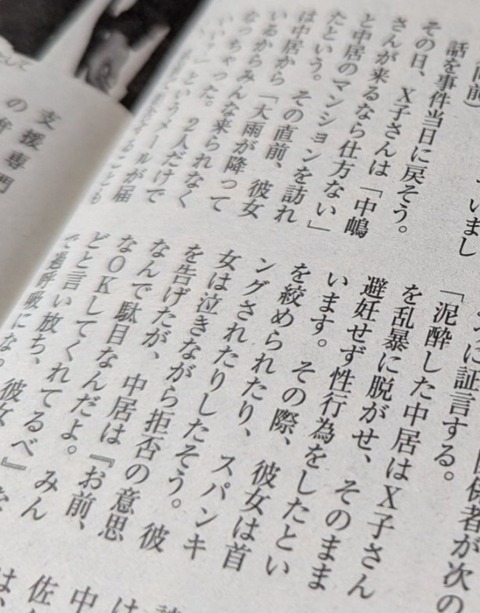 いまし
話を事件当日に戻そう。
その日、X子さんは「中嶋
さんが来るなら仕方ない」
と中居のマンションを訪れ
たという。その直前、彼女
は中居から「大雨が降って
いるからみんな来られなく
なっちゃった。2人だけで
というメールが届
係者が次の
に証言する。
「泥酔した中居はX子さん
を乱暴に脱がせ、そのまま
避妊せず性行為をしたとい
います。その際、彼女は首
を絞められたり、スパンキ
ングされたりしたそう。彼
女は泣きながら拒否の意思
を告げたが、中居は『お前、
なんで駄目なんだよ。みん
なOKしてくれてるべ』な
どと言い放ち、彼女
で過呼吸にな
支援専門
の弁